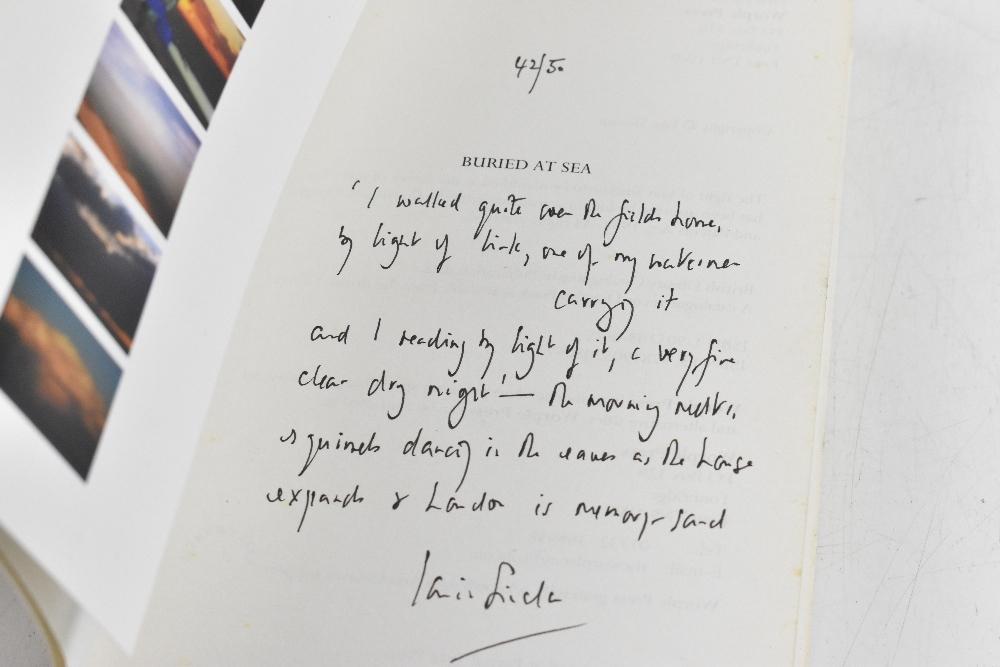 42/50
BURIED AT SEA
'I walked quite over the fields home,
by light of link, one of my watermen
carrying it
and I reading by light of it, a very fine
clear dry night' — the morning melts,
squirrels dancing in the eaves as the house
expands & London is memory-sand
Iain Sinclair